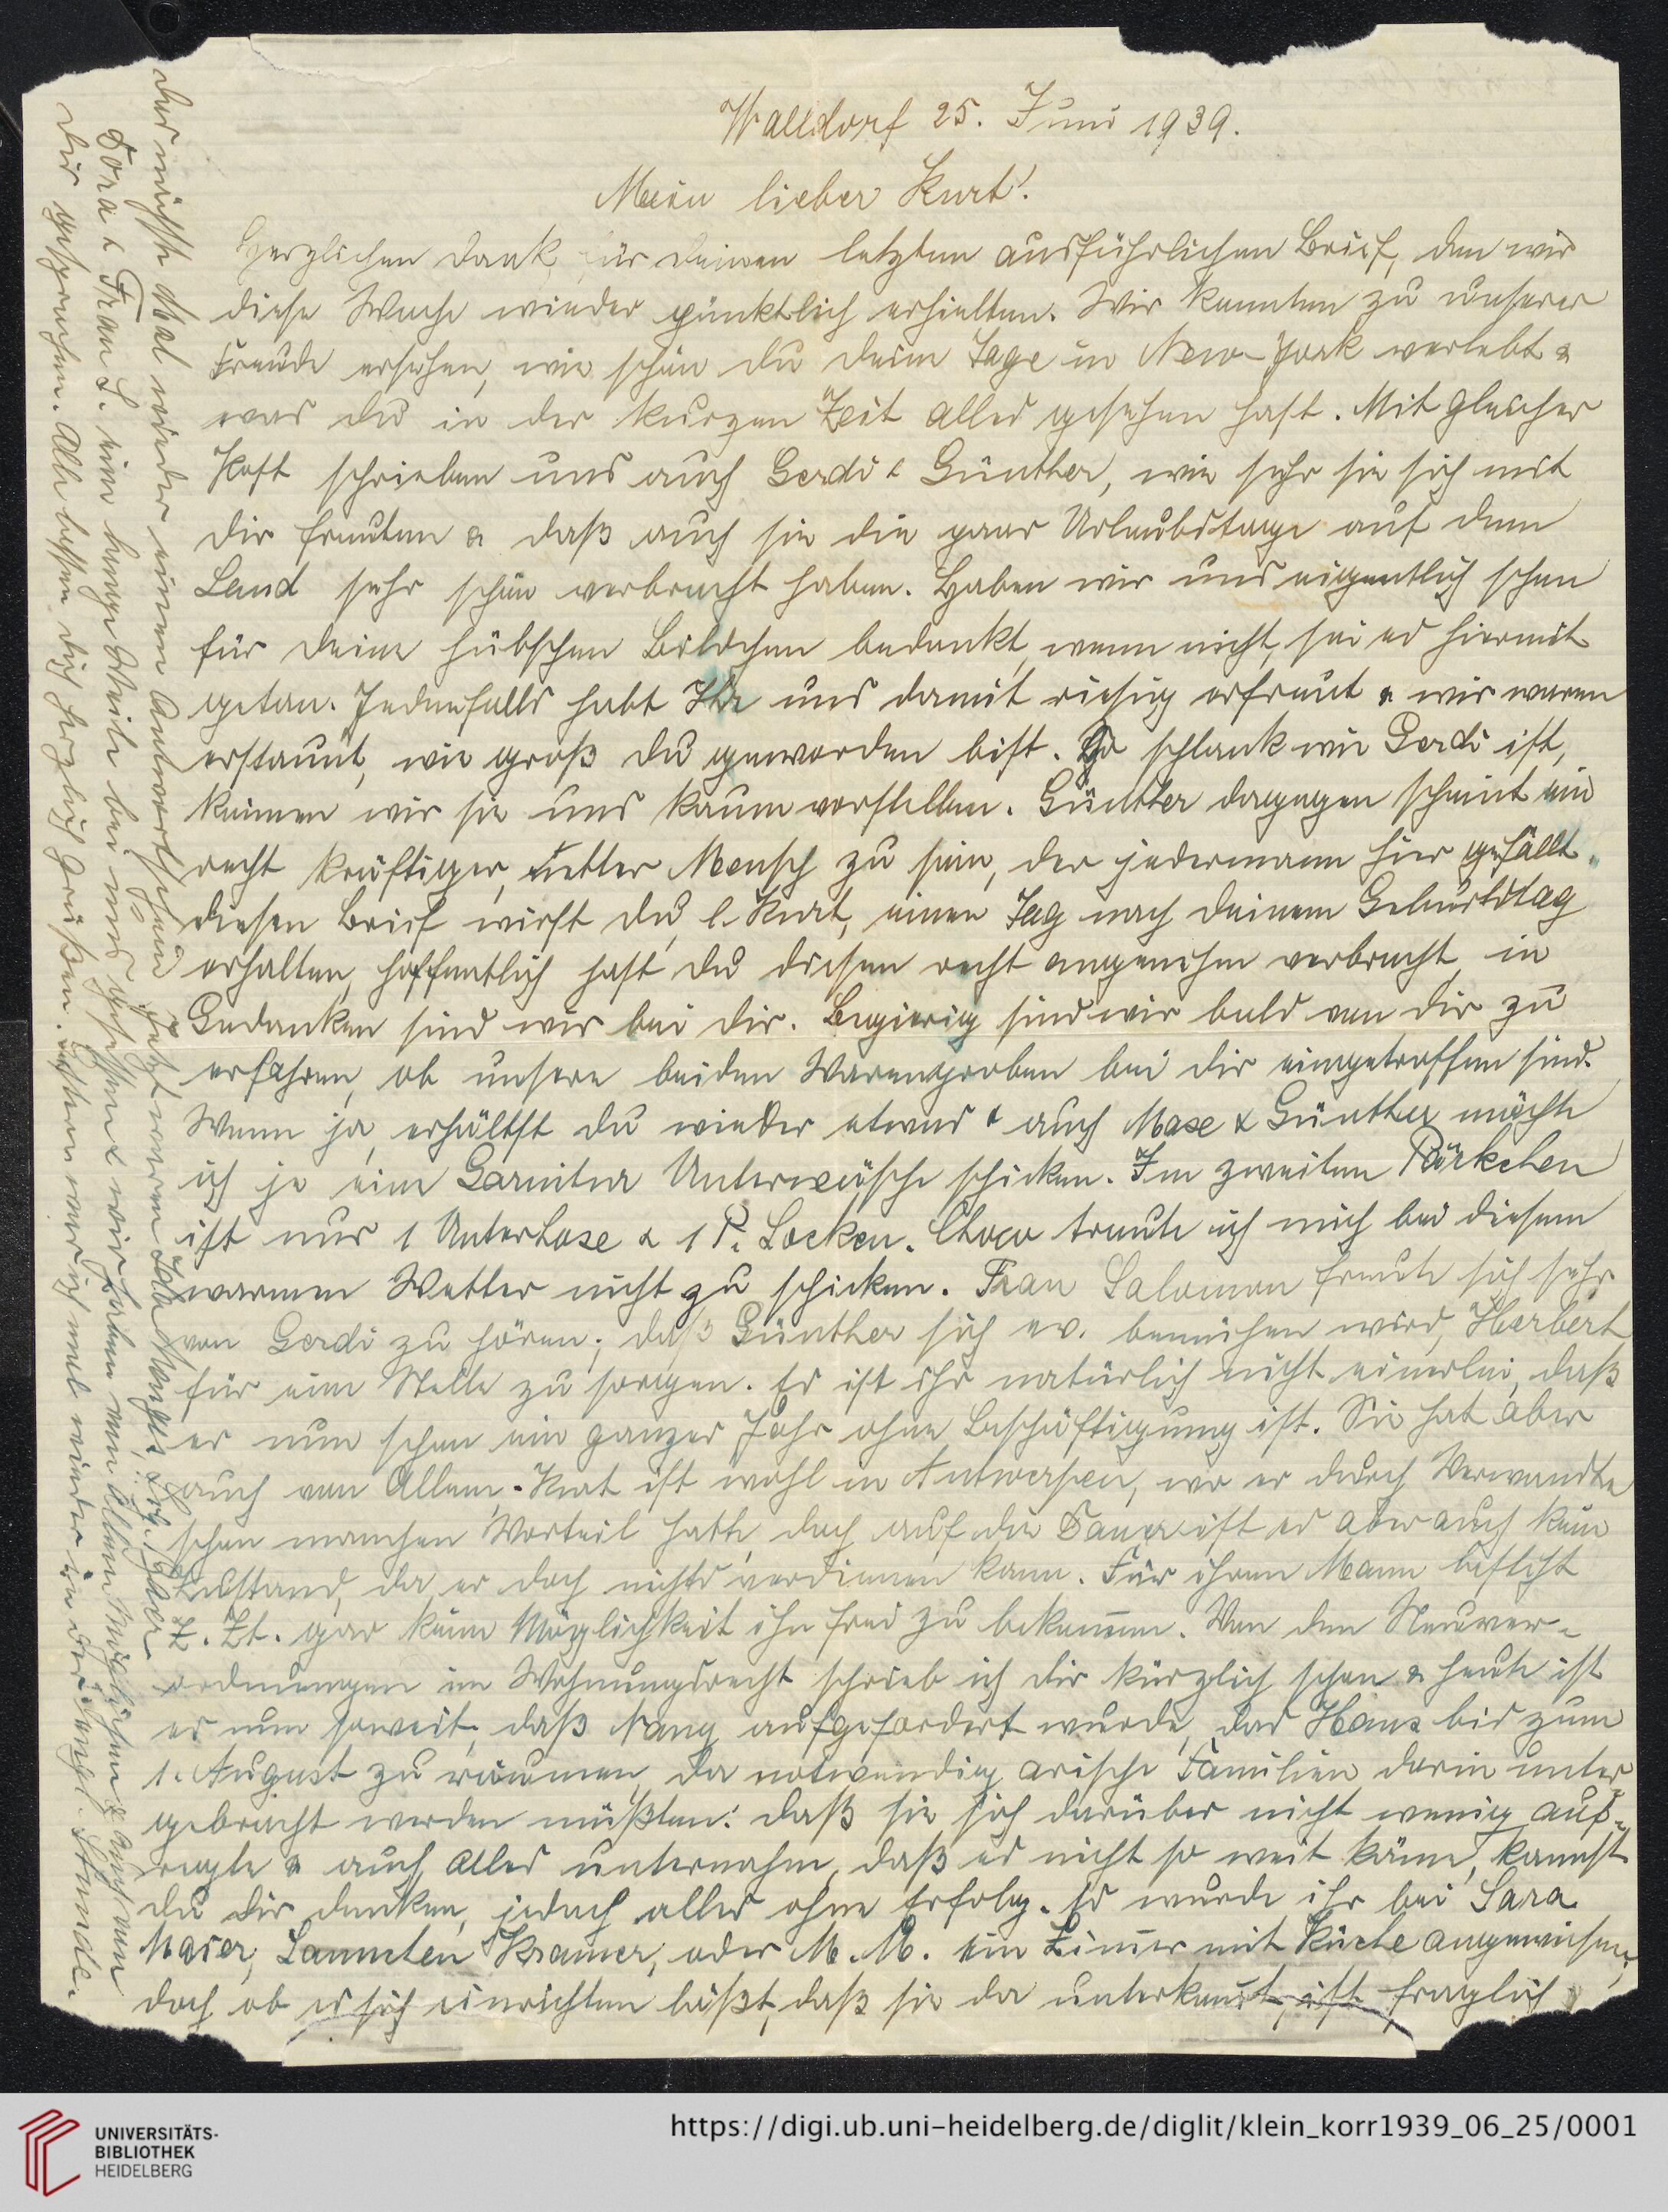 Walldorf 25. Juni 1939.
Mein lieber Kurt!
Herzlichen Dank für Deinen letzten ausführlichen Brief, den wir
diese Woche wieder pünktlich erhielten. Wir konnten zu unserer
Freude ersehen, wie schön Du Deine Tage in New-York verlebt &
was Du in der kurzen Zeit alles gesehen hast. Mit gleicher
Post schrieben uns auch Gerdi & Günther, wie sehr sie sich mit
Dir freuten & daß auch sie die paar Urlaubstage auf dem
Land sehr schön verbracht haben. Haben wir uns eigentlich schon
für Deine hübschen Bildchen bedankt, wenn nicht, sei es hiermit
getan. Jedenfalls habt Ihr uns damit riesig erfreut & wir waren
erstaunt, wie groß Du geworden bist. So schlank wie Gerdi ist,
können wir sie uns kaum vorstellen. Günther dagegen scheint ein
recht kräftiger, netter Mensch zu sein, der jedermann hier gefällt.
Diesen Brief wirst Du, l. Kurt, einen Tag nach Deinem Geburtstag
erhalten, hoffentlich hast Du diesen recht angenehm verbracht, in
Gedanken sind wir bei Dir. Begierig sind wir bald von Dir zu
erfahren, ob unsere beiden Warenproben bei Dir eingetroffen sind.
Wenn ja, erhältst Du wieder etwas & auch Maxe & Günther möchte
ich je eine Garnitur Unterwäsche schicken. Im zweiten Päckchen
ist nur 1 Unterhose & 1 P. Socken. Choco traute ich mich bei diesem
warmen Wetter nicht zu schicken. Frau Salomon freute sich sehr
von Gerdi zu hören, daß Günther sich ev. bemühen wird, Herbert
für eine Stelle zu sorgen. Es ist ihr natürlich nicht einerlei, daß
er nun schon ein ganzes Jahr ohne Beschäftigung ist. Sie hat aber
auch von Allem. Kurt ist wohl in Antwerpen, wo er durch Verwandte
schon manchen Vorteil hatte, doch auf die Dauer ist es aber auch kein
Zustand, da er doch nichts verdienen kann. Für ihren Mann besteht
z. Zt. gar keine Möglichkeit ihn frei zu bekommen. Von den Neuver-
ordnungen im Wohnungsrecht schrieb ich Dir kürzlich schon & heute ist
es nun soweit, daß Nany aufgefordert wurde, das Haus bis zum
1. August zu räumen, da notwendig arische Familien darin unter-
gebracht werden müßten. Daß sie sich darüber nicht wenig auf-
regte & auch alles unternahm, daß es nicht so weit käme, kannst
Du Dir denken, jedoch alles ohne Erfolg. Es wurde ihr bei Sara
Maier, Kramer, oder M. M. ein Zimmer mit Küche angewiesen,
doch ob es sich einrichten läßt, daß sie da unterkommt, ist fraglich
das nächste Mal wieder einen Antwortschein. Jetzt waren
Dora & Frau S. eine lange Weile bei uns gesessen & wir haben von allem Möglichen & auch von
Dir gesprochen. Alle lassen Dich herzlich grüßen. Gestern war ich mal wieder in der engl. Stunde.
UNIVERSITÄTS-
BIBLIOTHEK
HEIDELBERG
https://digi.ub.uni-heidelberg.de/diglit/klein_korr1939_06_25/0001